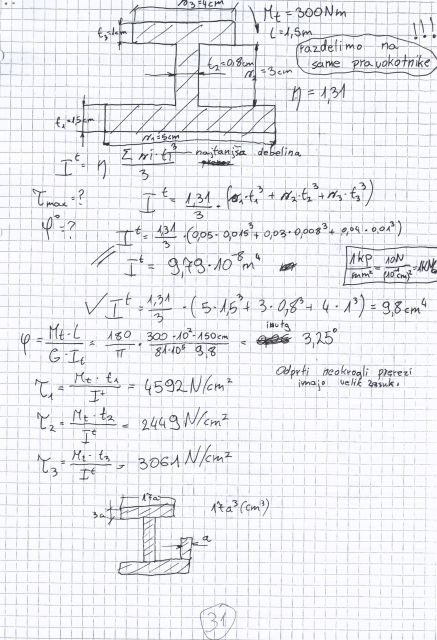 n₃=4cm
t₃=1cm
Mt = 300Nm
l = 1,5m
!!!
razdelimo na
same pravokotnike
t₂=0,8cm
n₂=3cm
η = 1,31
t₁=1,5cm
n₁=5cm
Iᵗ = η Σni·ti³/3 najtanjša debelina
τmax = ?
φ° = ?
Iᵗ = 1,31/3 · (n₁·t₁³ + n₂·t₂³ + n₃·t₃³)
Iᵗ = 1,31/3 · (0,05·0,015³ + 0,03·0,008³ + 0,04·0,01³)
Iᵗ = 9,79·10⁻⁸ m⁴
✓ Iᵗ = 1,31/3 · (5·1,5³ + 3·0,8³ + 4·1³) = 9,8cm⁴
φ = Mt·l/G·It = 180/π · 300·10²·150cm/81·10⁵·9,8 = 3,25°
τ₁ = Mt·t₁/Iᵗ = 4592 N/cm²
Odprti neokrogli prerezi
imajo velik zasuk.
τ₂ = Mt·t₂/Iᵗ = 2449 N/cm²
τ₃ = Mt·t₃/Iᵗ = 3061 N/cm²
17a
3a
17a³ (cm³)
a
31